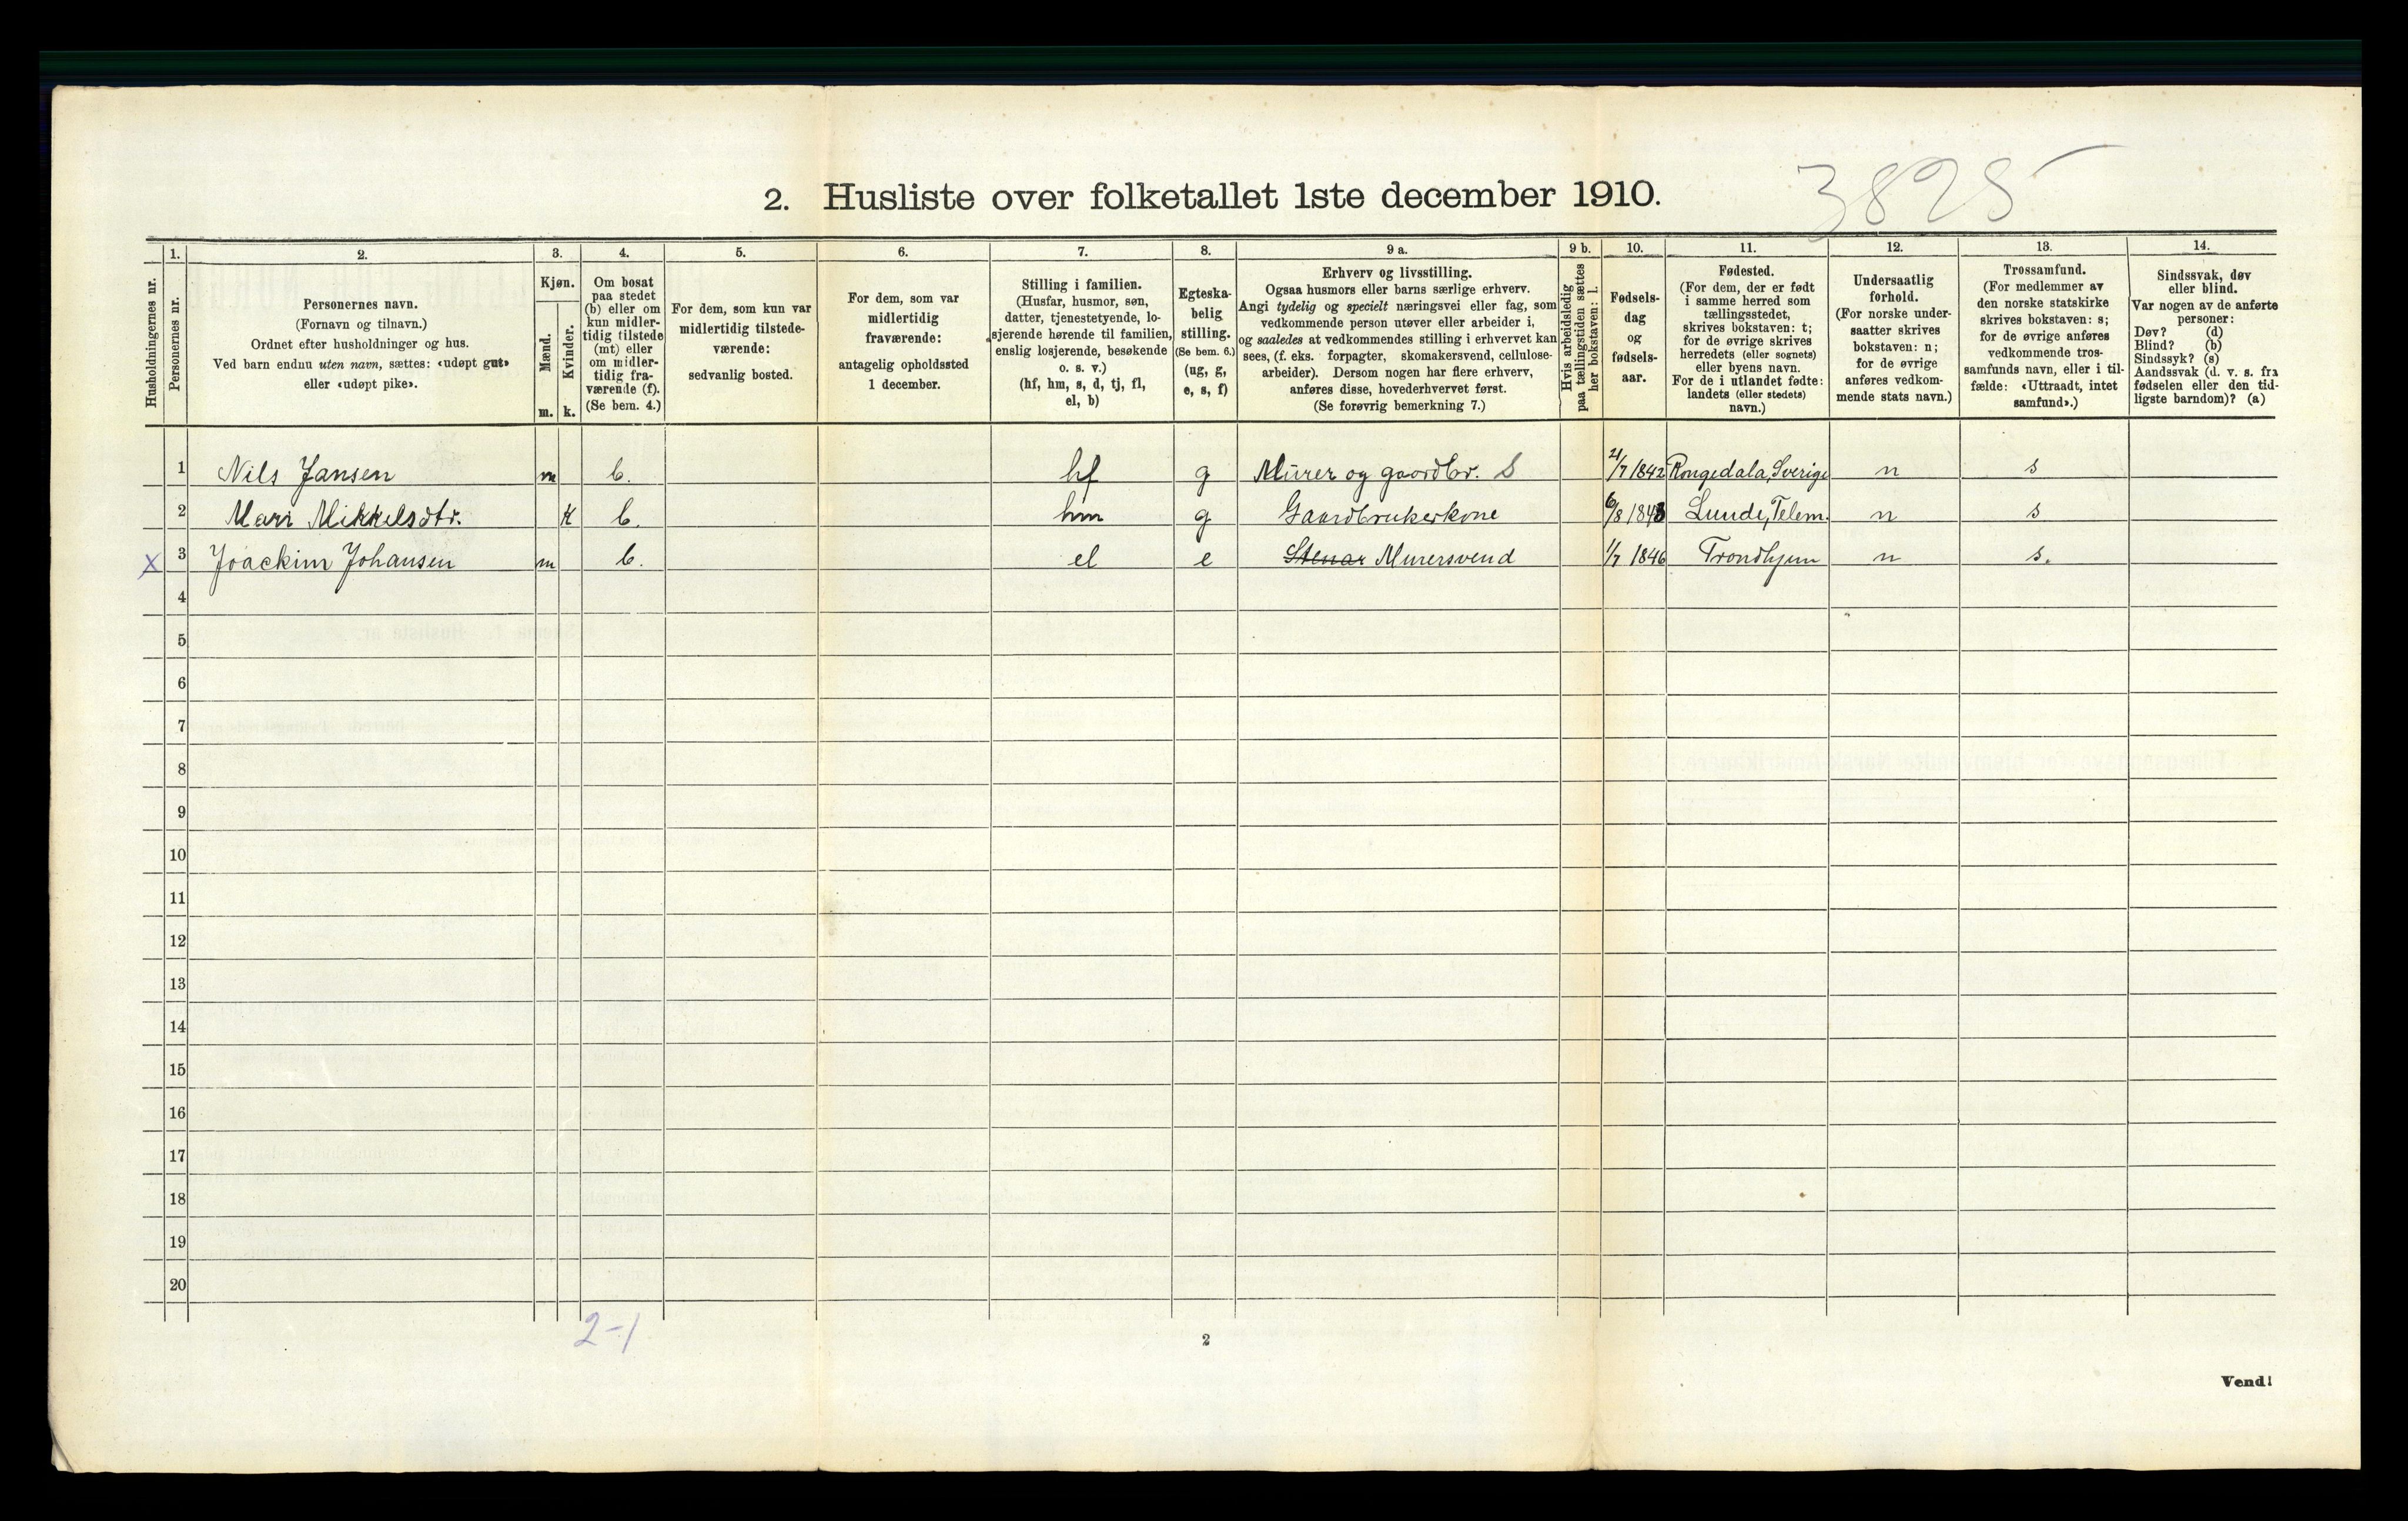 3825
2. Husliste over folketallet 1ste december 1910.
Husholdningernes nr.
1.
Personernes nr.
2.
Personernes navn.
(Fornavn og tilnavn.)
Ordnet efter husholdninger og hus.
Ved barn endnu uten navn, sættes: «udøpt gut»
eller «udøpt pike».
3.
Kjøn.
Mænd.
Kvinder.
m. k.
4.
Om bosat
paa stedet
(b) eller om
kun midler-
tidig tilstede
(mt) eller
om midler-
tidig fra-
værende (f).
(Se bem. 4.)
5.
For dem, som kun var
midlertidig tilstede-
værende:
sedvanlig bosted.
6.
For dem, som var
midlertidig
fraværende:
antagelig opholdssted
1 december.
7.
Stilling i familien.
(Husfar, husmor, søn,
datter, tjenestetyende, lo-
sjerende hørende til familien,
enslig losjerende, besøkende
o. s. v.)
(hf, hm, s, d, tj, fl,
el, b)
8.
Egteska-
belig
stilling.
(Se bem. 6.)
(ug, g,
e, s, f)
9 a.
Erhverv og livsstilling.
Ogsaa husmors eller barns særlige erhverv.
Angi tydelig og specielt næringsvei eller fag, som
vedkommende person utøver eller arbeider i,
og saaledes at vedkommendes stilling i erhvervet kan
sees, (f. eks. forpagter, skomakersvend, cellulose-
arbeider). Dersom nogen har flere erhverv,
anføres disse, hovederhvervet først.
(Se forøvrig bemerkning 7.)
9 b.
Hvis arbeidsledig
paa tællingstiden sættes
her bokstaven: l.
10.
Fødsels-
dag
og
fødsels-
aar.
11.
Fødested.
(For dem, der er født
i samme herred som
tællingsstedet,
skrives bokstaven: t;
for de øvrige skrives
herredets (eller sognets)
eller byens navn.
For de i utlandet fødte:
landets (eller stedets)
navn.)
12.
Undersaatlig
forhold.
(For norske under-
saatter skrives
bokstaven: n;
for de øvrige
anføres vedkom-
mende stats navn.)
13.
Trossamfund.
(For medlemmer av
den norske statskirke
skrives bokstaven: s;
for de øvrige anføres
vedkommende tros-
samfunds navn, eller i til-
fælde: «Uttraadt, intet
samfund».)
14.
Sindssvak, døv
eller blind.
Var nogen av de anførte
personer:
Døv? (d)
Blind? (b)
Sindssyk? (s)
Aandssvak (d. v. s. fra
fødselen eller den tid-
ligste barndom)? (a)
1 Nils Jansen m b. hf g Murer og gaardbr. S 21/7 1842 Rongedala, Sverige n s
2 Mari Mikkelsdtr. K b. hm g Gaardbrukerkone 6/8 1843 Lunde, Telem. n s
X 3 Joackim Johansen m b. el e Stenar Murersvend 1/7 1846 Trondhjem n s.
4
5
6
7
8
9
10
11
12
13
14
15
16
17
18
19
20
2-1
2
Vend!